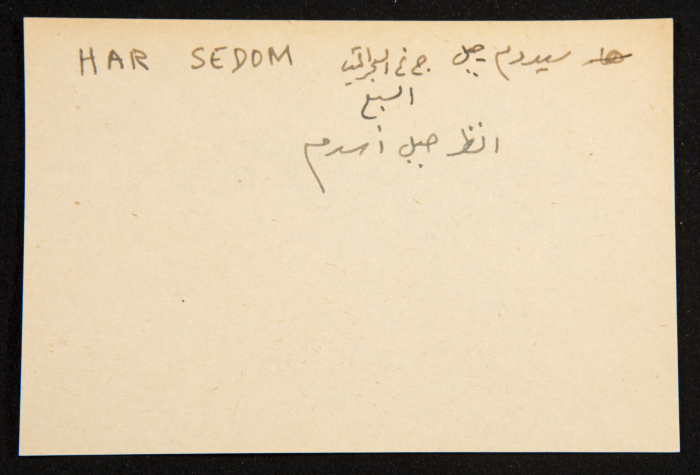 HAR SEDOM هار سيدوم جبل ج غ البحر الميت
السبع
انظر جبل أسدم